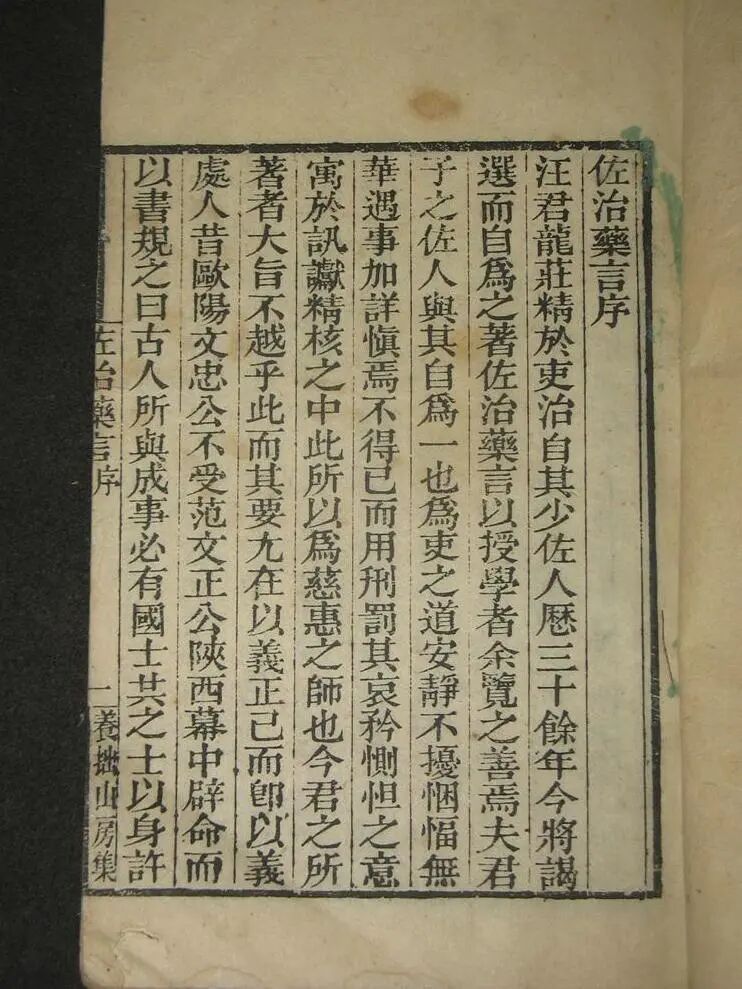 佐治藥言序
汪君龍莊精於吏治自其少佐人歷三十餘年今將謁
選而自為之著佐治藥言以授學者余覽之善焉夫君
子之佐人與其自為一也為吏之道安靜不擾悃愊無
華遇事加詳慎焉不得已而用刑罰其哀矜惻怛之意
寓於訊讞精核之中此所以為慈惠之師也今君之所
著者大旨不越乎此而其要尤在以義正己而即以義
處人昔歐陽文忠公不受范文正公陝西幕中辟命而
以書規之曰古人所與成事必有國士共之士以身許
佐治藥言序
一
養拙山房集